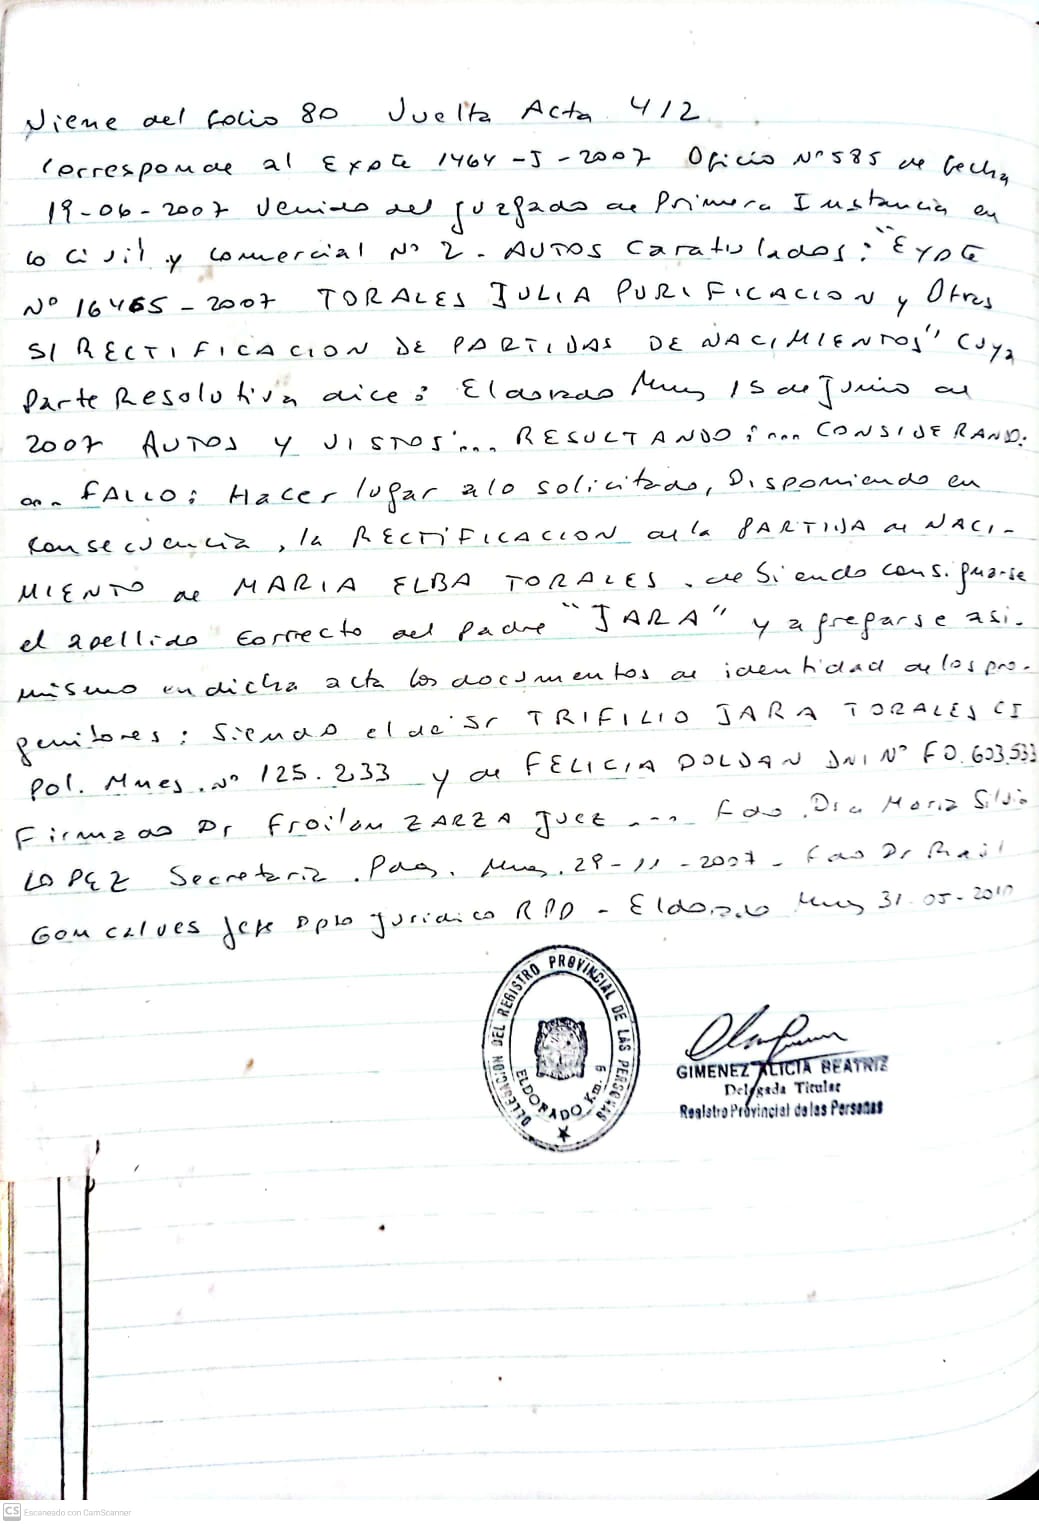 Viene del folio 80 Vuelta Acta 412
Corresponde al Expte 1464-J-2007 Oficio Nº 585 de fecha
19-06-2007 Venido del Juzgado de Primera Instancia en
lo Civil y Comercial Nº 2. AUTOS Caratulados: "EXPTE
Nº 16465-2007 TORALES JULIA PURIFICACION y Otros
S/ RECTIFICACION DE PARTIDAS DE NACIMIENTOS" Cuya
Parte Resolutiva dice: Eldorado Mnes 15 de Junio de
2007 AUTOS Y VISTOS:... RESULTANDO:... CONSIDERAND:
... FALLO: Hacer lugar a lo solicitado, Disponiendo en
consecuencia, la RECTIFICACION de la PARTIDA de NACI-
MIENTO de MARIA ELBA TORALES. debiendo consignarse
el apellido correcto del padre "JARA" y agregarse asi-
mismo en dicha acta los documentos de identidad de los pro-
genitores: Siendo el de Sr TRIFILIO JARA TORALES CI
Pol. Mnes. Nº 125.233 y de FELICIA DOLDAN DNI Nº F0.603.533
Firmado Dr Froilan ZARZA Juez .... Fdo. Dra Maria Silvia
LOPEZ Secretaria. Pdas. Mnes. 29-11-2007- Fdo Dr Raúl
Goncalves Jefe Dpto Juridico RPP - Eldorado Mnes 31-05-2010
DELEGACION DEL REGISTRO PROVINCIAL DE LAS PERSONAS
ELDORADO Km. 9
GIMENEZ ALICIA BEATRIZ
Delegada Titular
Registro Provincial de las Personas
CS Escaneado con CamScanner